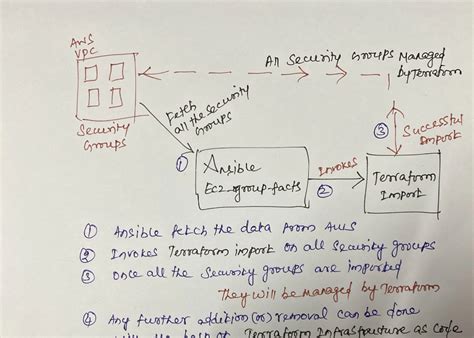 AWS
VPC
All Security Groups Managed
by Terraform
Security
Groups
Fetch
all the security
Groups
①
Ansible
Ec2-group-facts
Invokes
②
Terraform
Import
③
Successful
import
① Ansible fetch the data from AWS
② Invokes Terraform import on all Security groups
③ Once all the Security groups are imported
They will be Managed by Terraform
④ Any further addition (or) removal can be done
Terraform Infrastructure as code